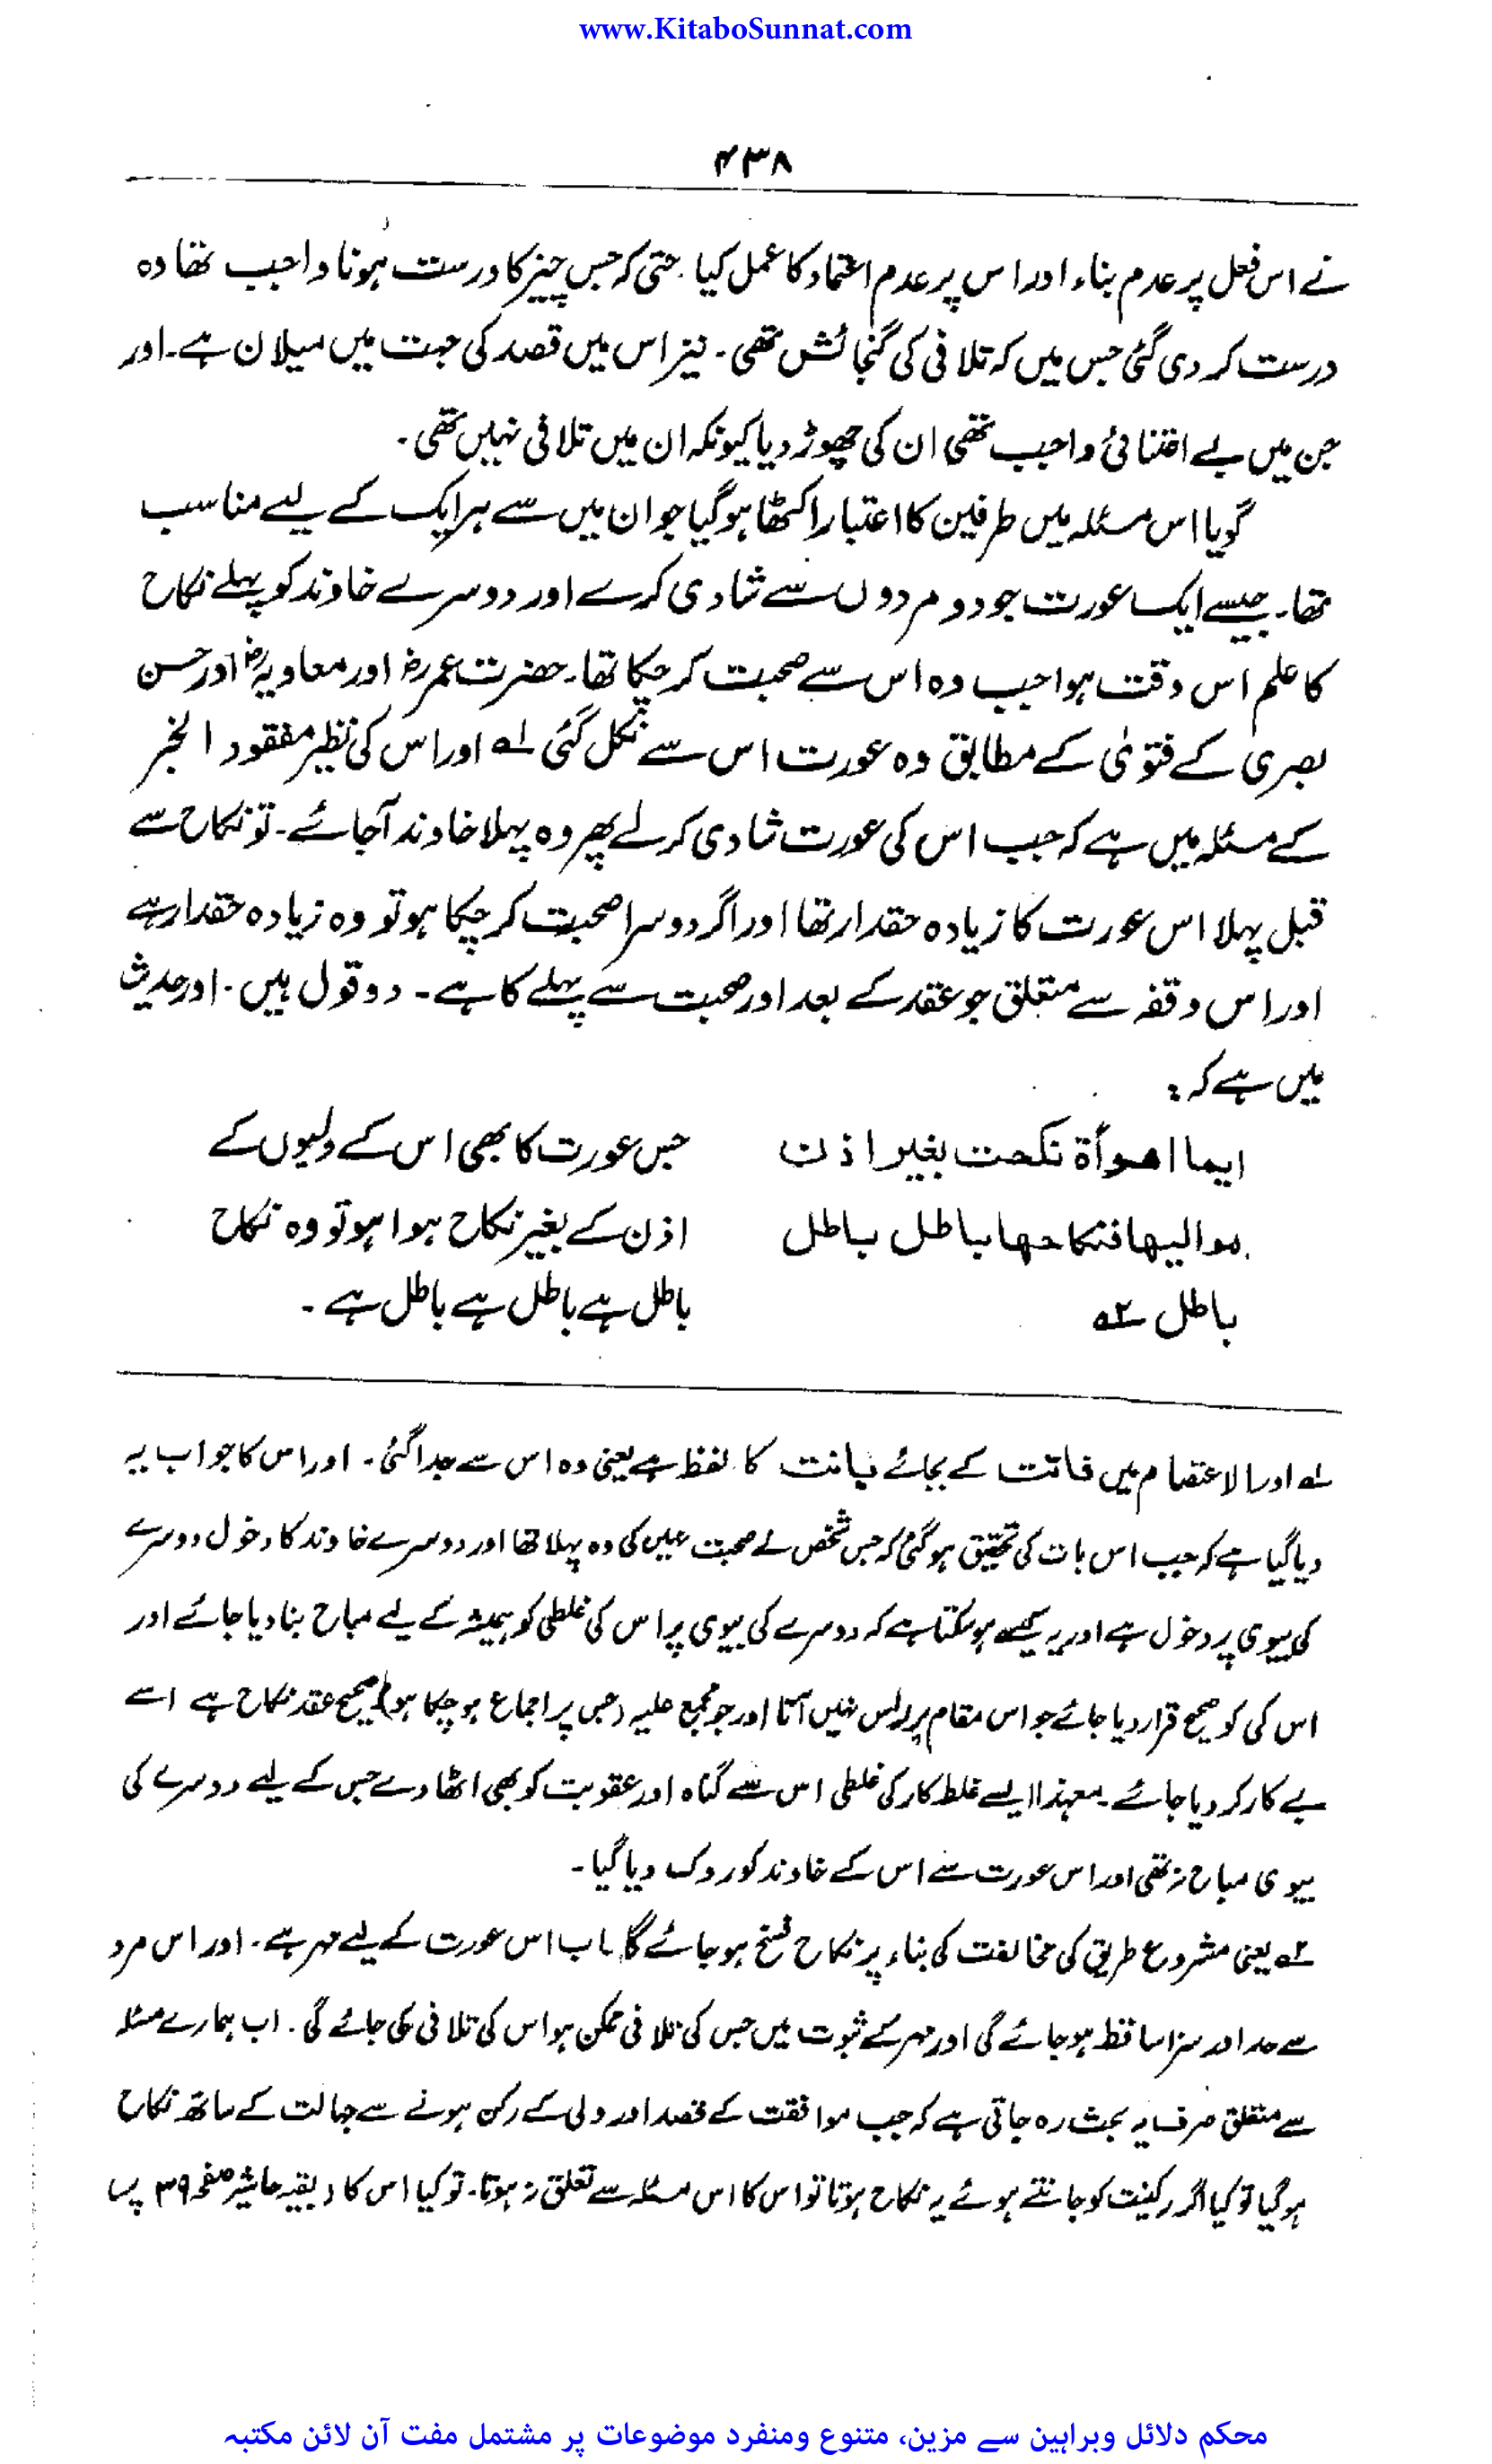 www.KitaboSunnat.com
۴۳۸
نے اس فعل پر عدم بناء اور اس پر عدم اعتماد کا عمل کیا۔ حتی کہ جس چیز کا درست ہونا واجب تھا وہ
درست کر دی گئی جس میں کہ تلافی کی گنجائش تھی۔ نیز اس میں قصد کی جہت میں میلان ہے۔ اور
جن میں بے اعتنائی واجب تھی ان کی چھوڑ دیا کیونکہ ان میں تلافی نہیں تھی۔
گویا اس مسئلہ میں طرفین کا اعتبار اکٹھا ہوگیا جو ان میں سے ہر ایک کے لیے مناسب
تھا۔ جیسے ایک عورت جو دو مردوں سے شادی کرے اور دوسرے خاوند کو پہلے نکاح
کا علم اس وقت ہوا جب وہ اس سے صحبت کر چکا تھا۔ حضرت عمررض اور معاویہرض اور حسن
بصری کے فتویٰ کے مطابق وہ عورت اس سے نکل گئی لہ اور اس کی نظیر مفقود الخبر
کے مسئلہ میں ہے کہ جب اس کی عورت شادی کر لے پھر وہ پہلا خاوند آجائے۔ تو نکاح سے
قبل پہلا اس عورت کا زیادہ حقدار تھا اور اگر دوسرا صحبت کر چکا ہو تو وہ زیادہ حقدار ہے
اور اس وقفہ سے متعلق جو عقد کے بعد اور صحبت سے پہلے کا ہے۔ دو قول ہیں۔ اور حدیث
میں ہے کہ :
ایما امرأة نکحت بغیر اذن
موالیها فنکاحها باطل باطل
باطل ۲ہ
جس عورت کا بھی اس کے ولیوں کے
اذن کے بغیر نکاح ہوا ہو تو وہ نکاح
باطل ہے باطل ہے باطل ہے۔
لہ اور الاعتصام میں فاتت کے بجائے بانت کا لفظ ہے یعنی وہ اس سے جدا گئی۔ اور اس کا جواب یہ
دیا گیا ہے کہ جب اس بات کی تحقیق ہوگئی کہ جس شخص نے صحبت نہیں کی وہ پہلا تھا اور دوسرے خاوند کا دخول دوسرے
کی بیوی پر دخول ہے اور یہ کیسے ہوسکتا ہے کہ دوسرے کی بیوی پر اس کی غلطی کو ہمیشہ کے لیے مباح بنا دیا جائے اور
اس کی کو صحیح قرار دیا جائے جو اس مقام پر راس نہیں آتا اور جو مجمع علیہ (جس پر اجماع ہو چکا ہو) صحیح عقد نکاح ہے اسے
بے کار کر دیا جائے۔ معہذا ایسے غلط کار کی غلطی اس سے گناہ اور عقوبت کو بھی اٹھا دے جس کے لیے دوسرے کی
بیوی مباح نہ تھی اور اس عورت سے اس کے خاوند کو روک دیا گیا۔
۲ہ یعنی مشروع طریق کی مخالفت کی بناء پر نکاح فسخ ہو جائے گا۔ اب اس عورت کے لیے مہر ہے۔ اور اس مرد
سے حد اور سزا ساقط ہو جائے گی اور مہر کے ثبوت میں جس کی تلافی ممکن ہو اس کی تلافی کی جائے گی۔ اب ہمارے مسئلہ
سے متعلق صرف یہ بحث رہ جاتی ہے کہ جب موافقت کے قصد اور ولی کے رکن ہونے سے جہالت کے ساتھ نکاح
ہو گیا تو کیا اگر رکنیت کو جانتے ہوئے یہ نکاح ہوتا تو اس کا اس مسئلہ سے تعلق نہ ہوتا۔ تو کیا اس کا (بقیہ حاشیہ صفحہ ۳۹ پر
محکم دلائل وبراہین سے مزین، متنوع ومنفرد موضوعات پر مشتمل مفت آن لائن مکتبہ